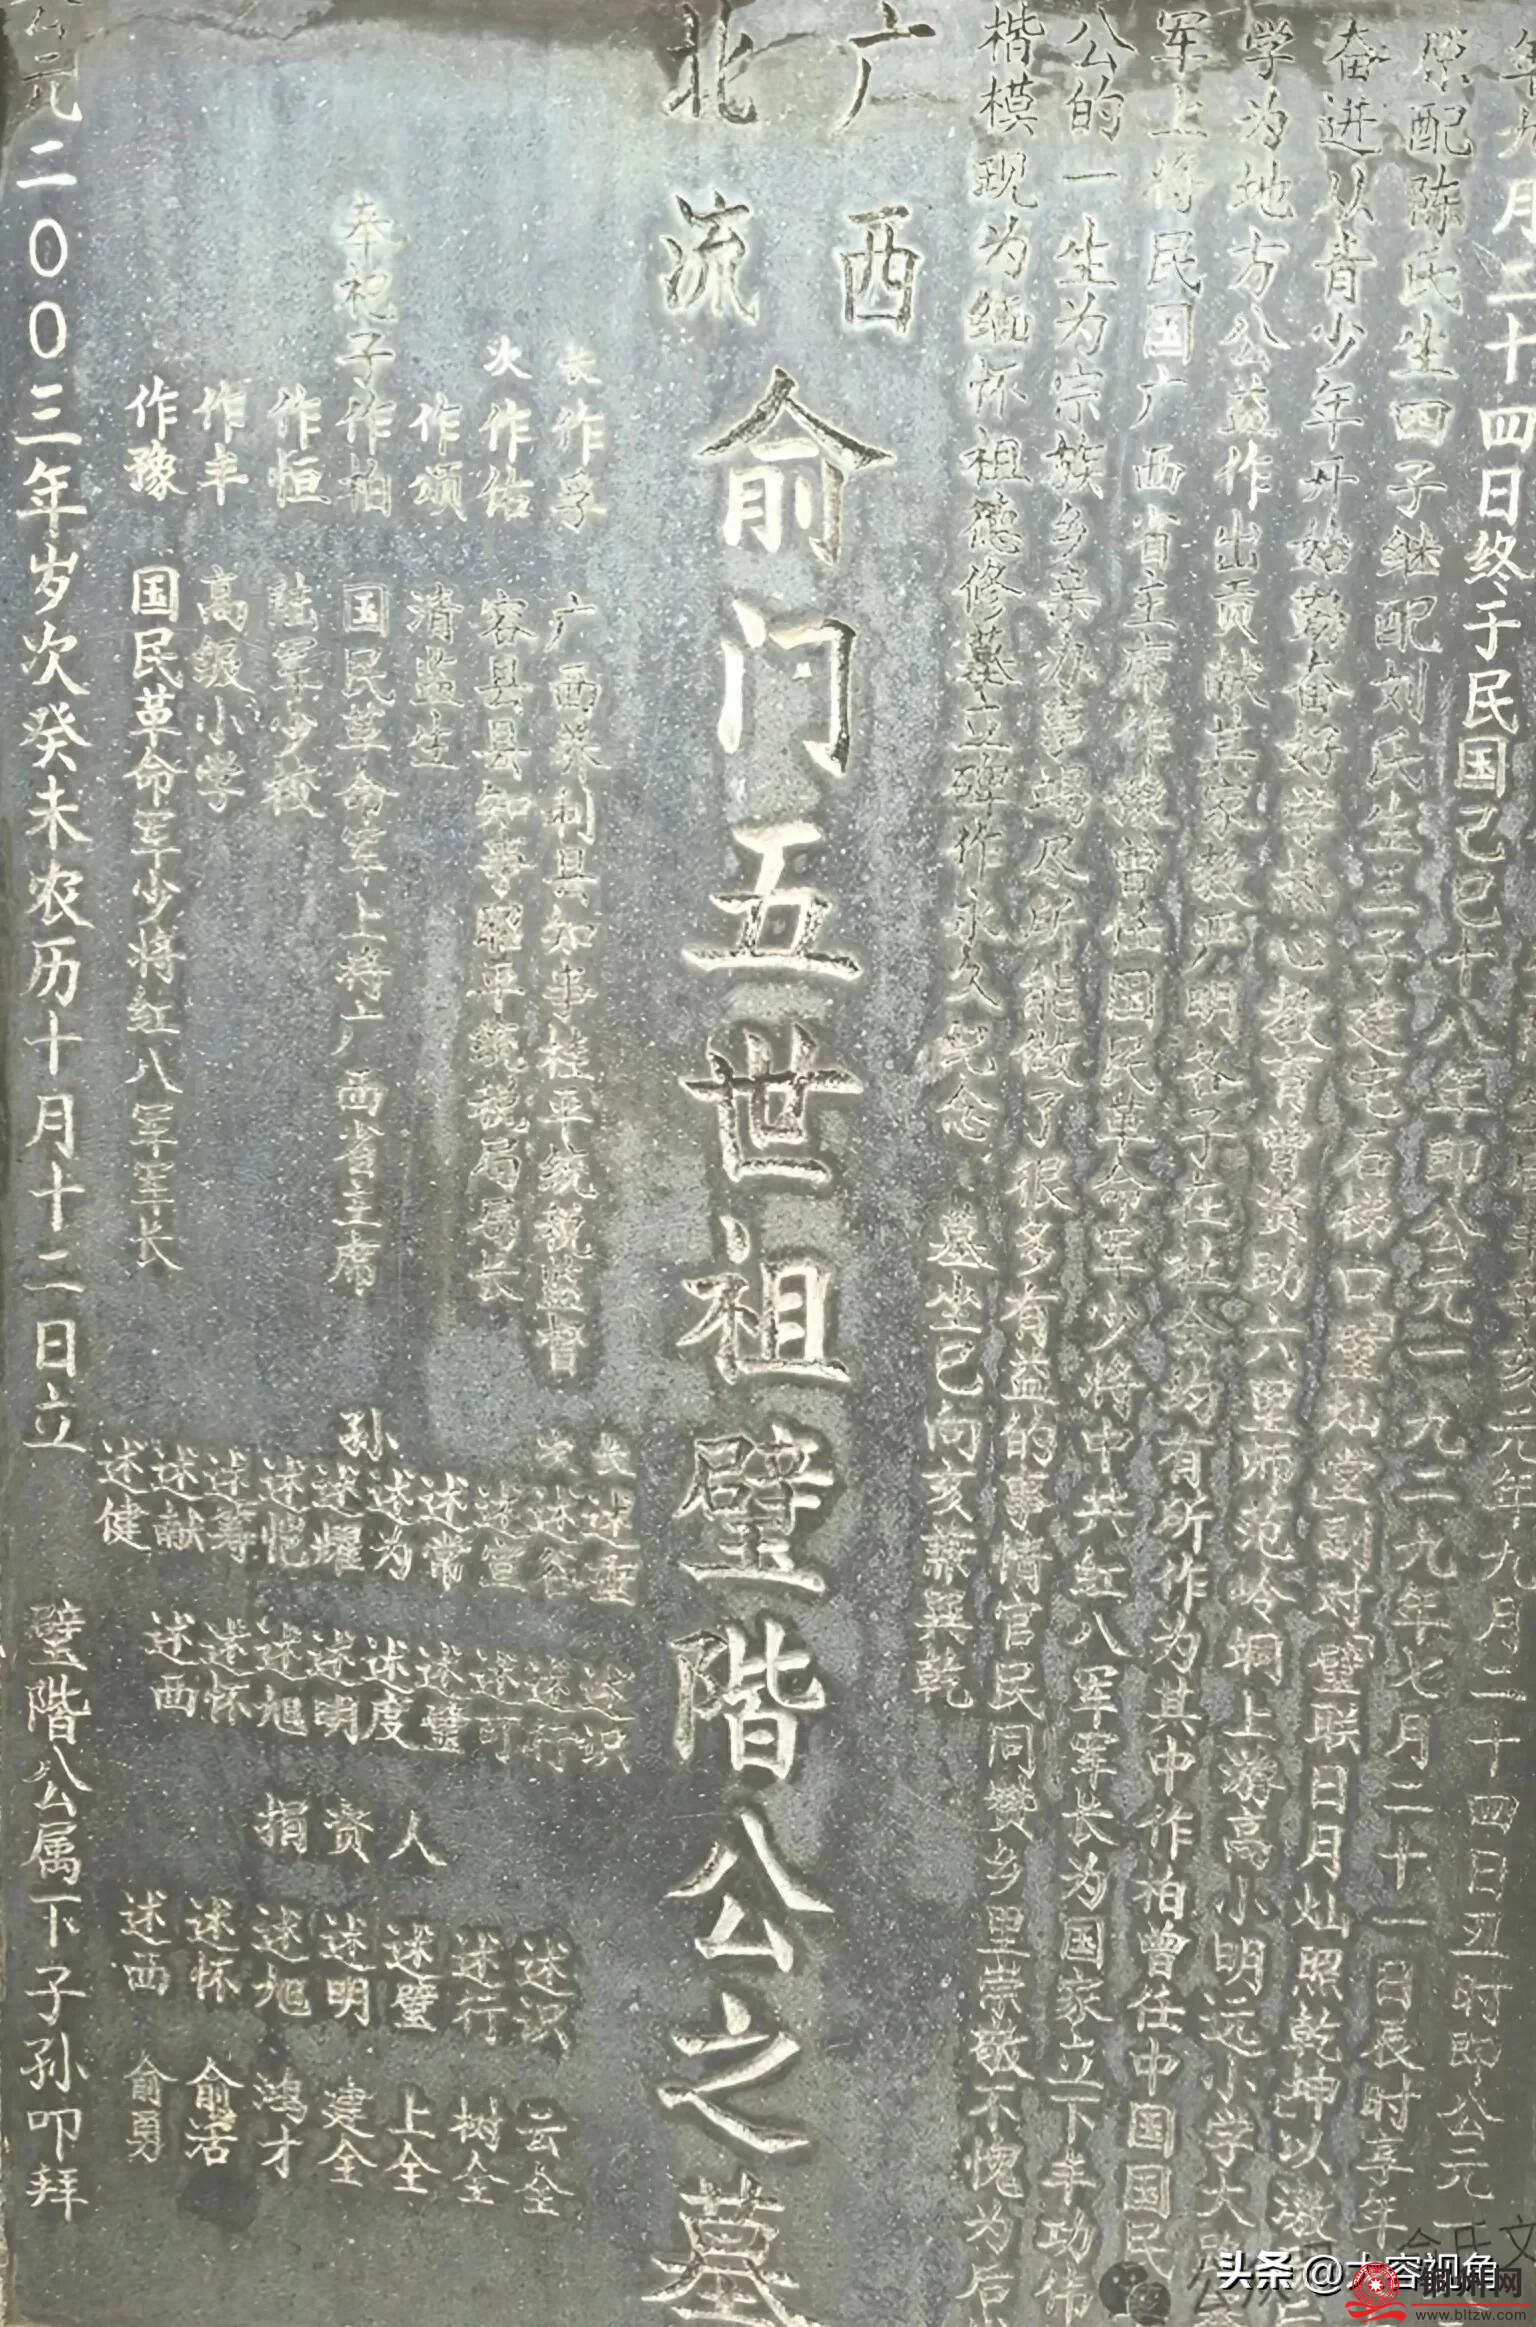 月二十四日终于民国己巳十八年即公元一九二九年七月二十一日辰时享年
原配陈氏生四子继配刘氏生三子建宅石梯口璧灿堂副对璧联日月灿照乾坤以激
奋进从青少年开始勤奋好学热心教育曾资助六里师范冷垌上游高小明远小学大
学为地方公益作出贡献其家教严明各子在社会均有所作为其中作柏曾任中国国民
军上将民国广西省主席作豫曾任国民革命军少将中共红八军军长为国家立下丰功伟
公的一生为宗族乡亲办事竭尽所能做了很多有益的事情官民同赞乡里崇敬不愧为后
楷模现为缅怀祖德修墓立碑作永久纪念 墓坐巳向亥兼巽乾
广西
北流
俞门五世祖璧阶公之墓
长作孚 广西荣利县知事桂平统税监督
次作估 容县县知事昭平统税局局长
作颂 清监生
奉祀子作柏 国民革命军上将广西省主席
作恒 陆军少校
作丰 高级小学
作豫 国民革命军少将红八军军长
孙
述谷 述宣 述常 述为 述耀 述恺 述筹 述献 述健
述识 述行 述可 述璧 述度 述明 述旭 述怀 述西
捐资人
述识 述行 述璧 述明 述旭 述怀 述西
云全 树全 上全 建全 鸿才 俞活 俞勇
元二00三年岁次癸未农历十月十二日立 璧阶公属下子孙叩拜
头条 @大容视角
www.bltzw.com